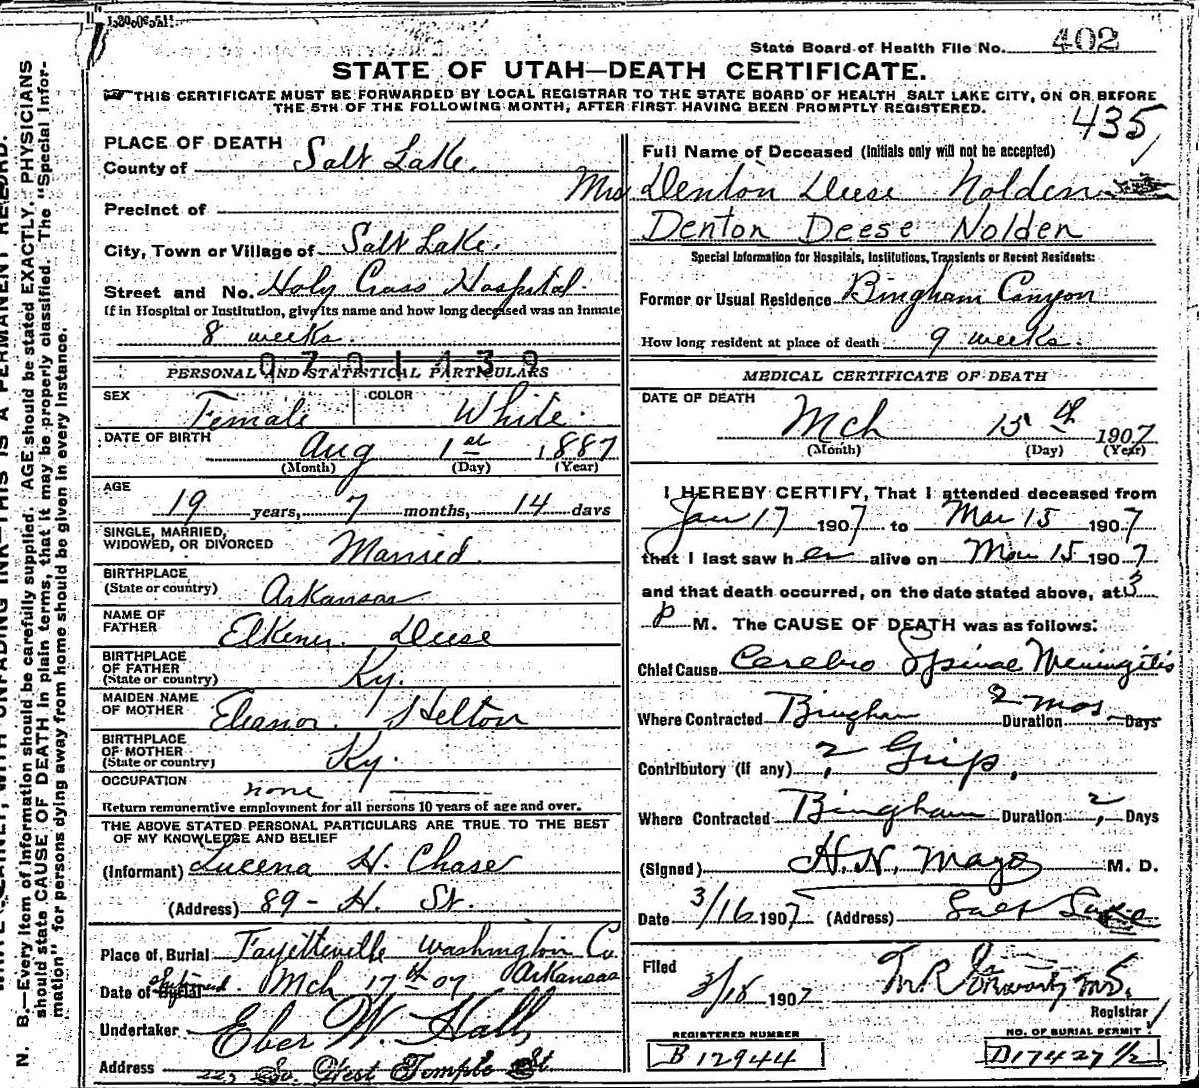 State Board of Health File No. 402
STATE OF UTAH—DEATH CERTIFICATE.
THIS CERTIFICATE MUST BE FORWARDED BY LOCAL REGISTRAR TO THE STATE BOARD OF HEALTH SALT LAKE CITY, ON OR BEFORE
THE 5TH OF THE FOLLOWING MONTH, AFTER FIRST HAVING BEEN PROMPTLY REGISTERED.
435
PLACE OF DEATH
County of Salt Lake.
Precinct of
City, Town or Village of Salt Lake.
Street and No. Holy Cross Hospital.
If in Hospital or Institution, give its name and how long deceased was an Inmate
8 weeks.
0701439
PERSONAL AND STATISTICAL PARTICULARS
SEX Female COLOR White.
DATE OF BIRTH Aug 1st 1887
(Month) (Day) (Year)
AGE
19 years, 7 months, 14 days
SINGLE, MARRIED,
WIDOWED, OR DIVORCED Married.
BIRTHPLACE
(State or country) Arkansas
NAME OF
FATHER Deese
BIRTHPLACE
OF FATHER
(State or country) Ky.
MAIDEN NAME
OF MOTHER Eleanor Helton
BIRTHPLACE
OF MOTHER
(State or country) Ky.
OCCUPATION none
Return remunerative employment for all persons 10 years of age and over.
THE ABOVE STATED PERSONAL PARTICULARS ARE TRUE TO THE BEST
OF MY KNOWLEDGE AND BELIEF
(Informant) Lucena H. Chase
(Address) 89 - H. St.
Place of Burial Fayetteville Washington Co.
Arkansas
Date of Burial Mch 17th 07
Undertaker Eber W. Hall,
Address So. West Temple St
Full Name of Deceased (Initials only will not be accepted)
Mrs Denton Deese Nolden
Denton Deese Nolden
Special Information for Hospitals, Institutions, Transients or Recent Residents:
Former or Usual Residence Bingham Canyon
How long resident at place of death 9 weeks.
MEDICAL CERTIFICATE OF DEATH
DATE OF DEATH
Mch 15th 1907
(Month) (Day) (Year)
I HEREBY CERTIFY, That I attended deceased from
Jan 17 1907 to Mar 15 1907
that I last saw her alive on Mar 15 1907
and that death occurred, on the date stated above, at 3
P M. The CAUSE OF DEATH was as follows:
Chief Cause Cerebro Spinal Meningitis
Where Contracted Bingham Duration 2 mos Days
Contributory (if any) ? Grip.
Where Contracted Bingham Duration ? Days
(Signed) H. N. Mayo M. D.
Date 3/16 1907 (Address) Salt Lake
Filed 3/18 1907
Registrar
REGISTERED NUMBER
B 12944
NO. OF BURIAL PERMIT
D17427 1/2
N. B.—Every item of information should be carefully supplied. AGE should be stated EXACTLY. PHYSICIANS
should state CAUSE OF DEATH in plain terms, that it may be properly classified. The "Special Infor-
mation" for persons dying away from home should be given in every instance.
WITH UNFADING INK—THIS IS A PERMANENT RECORD.